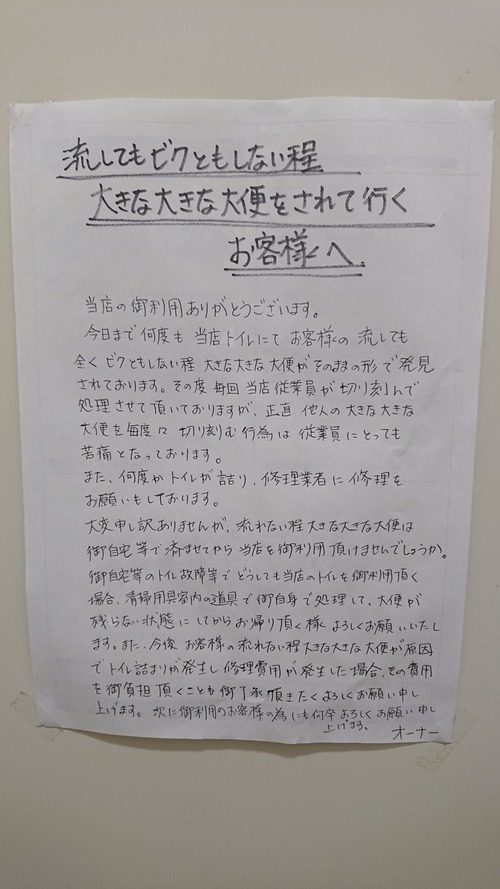 流してもビクともしない程
大きな大きな大便をされて行く
お客様へ.
当店の御利用ありがとうございます。
今日まで何度も当店トイレにてお客様の流しても
全くビクともしない程大きな大きな大便がそのままの形で発見
されております。その度毎回当店従業員が切り刻んで
処理させて頂いておりますが、正直他人の大きな大きな
大便を毎度々切り刻む行為は従業員にとっても
苦痛となっております。
また、何度かトイレが詰り、修理業者に修理を
お願いもしております。
大変申し訳ありませんが、流れない程大きな大きな大便は
御自宅等で済ませてから当店を御利用頂けませんでしょうか。
御自宅等のトイレ故障等でどうしても当店のトイレを御利用頂く
場合、清掃用具室内の道具で御自身で処理して、大便が
残らない状態にしてからお帰り頂く様よろしくお願いいたし
ます。また、今後お客様の流れない程大きな大きな大便が原因
でトイレ詰まりが発生し修理費用が発生した場合、その費用
を御負担頂くことも御了承頂きたくよろしくお願い申し
上げます。次に御利用のお客様の為にも何卒よろしくお願い申し
上げます。
オーナー